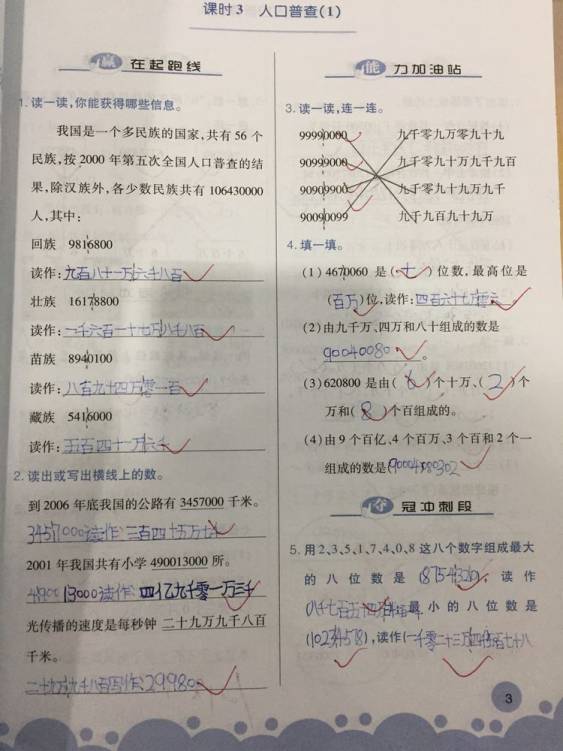 课时3 人口普查(1)
赢 在起跑线
1.读一读,你能获得哪些信息。
我国是一个多民族的国家,共有 56 个
民族,按 2000 年第五次全国人口普查的结
果,除汉族外,各少数民族共有 106430000
人,其中:
回族 9816800
读作:九百八十一万六千八百
壮族 16178800
读作:一千六百一十七万八千八百
苗族 8940100
读作:八百九十四万零一百
藏族 5416000
读作:五百四十一万六千
2.读出或写出横线上的数。
到 2006 年底我国的公路有 3457000 千米。
3457000读作:三百四十五万七千
2001 年我国共有小学 490013000 所。
490013000读作:四亿九千零一万三千
光传播的速度是每秒钟 二十九万九千八百
千米。
二十九万九千八百写作:299800
能 力加油站
3.读一读,连一连。
99990000 九千零九万零九十九
90999000 九千零九十万九千九百
90909900 九千零九十九万九千
90090099 九千九百九十九万
4.填一填。
(1)4670060 是(七)位数,最高位是
(百万)位,读作:四百六十七万零六
(2)由九千万、四万和八十组成的数是
90040080。
(3)620800 是由(6)个十万、(2)个
万和(8)个百组成的。
(4)由 9 个百亿、4 个百万、3 个百和 2 个一
组成的数是
夺 冠冲刺段
5.用 2,3,5,1,7,4,0,8 这八个数字组成最大
的八位数是(87543210),读作
最小的八位数是
(10234578),读作(一千零二十三万四千五百七十八
3